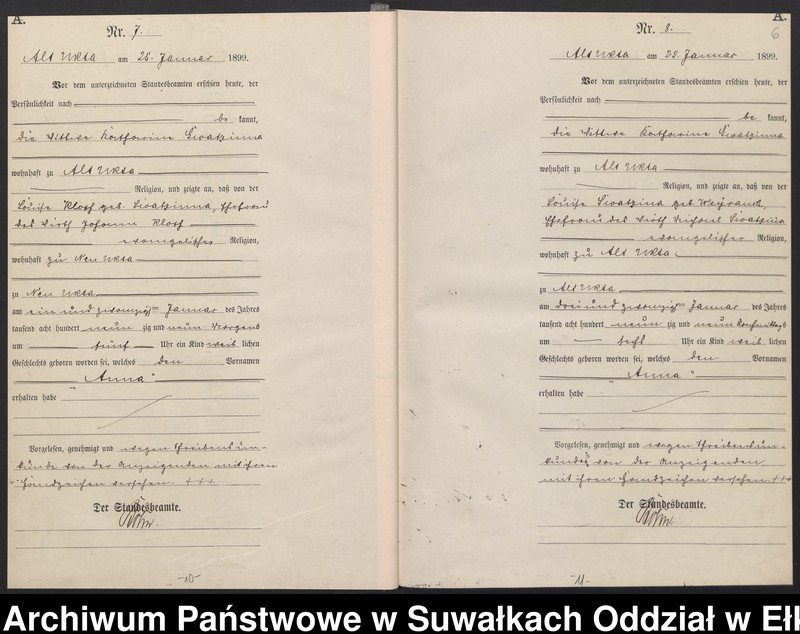 A.
Nr. 7.
Alt Ukta am 25. Januar 1899.
Vor dem unterzeichneten Standesbeamten erschien heute, der
Persönlichkeit nach
be kannt,
die Wittwe Katharine
wohnhaft zu Alt Ukta
Religion, und zeigte an, daß von der
Louise geb. Ehefrau
des Wirth Johann
evangelischer Religion,
wohnhaft zu Neu Ukta
zu Neu Ukta
am ein und zwanzigsten Januar des Jahres
tausend acht hundert neun zig und neun Morgens
um fünf Uhr ein Kind weib lichen
Geschlechts geboren worden sei, welches den Vornamen
"Anna"
erhalten habe
Vorgelesen, genehmigt und wegen Schreibensun-
kunde von der Anzeigenden mit ihren
Handzeichen versehen. +++
Der Standesbeamte.
-10-
A.
6
Nr. 8.
Alt Ukta am 25. Januar 1899.
Vor dem unterzeichneten Standesbeamten erschien heute, der
Persönlichkeit nach
be kannt,
die Wittwe Katharine
wohnhaft zu Alt Ukta
Religion, und zeigte an, daß von der
Louise geb.
Ehefrau des Wirth
evangelischer Religion,
wohnhaft zu Alt Ukta
zu Alt Ukta
am drei und zwanzigsten Januar des Jahres
tausend acht hundert neun zig und neun Nachmittags
um sechs Uhr ein Kind weib lichen
Geschlechts geboren worden sei, welches den Vornamen
"Anna"
erhalten habe
Vorgelesen, genehmigt und wegen Schreibensun-
kunde von der Anzeigenden
mit ihren Handzeichen versehen. +++
Der Standesbeamte.
-11-
Archiwum Państwowe w Suwałkach Oddział w Ełk